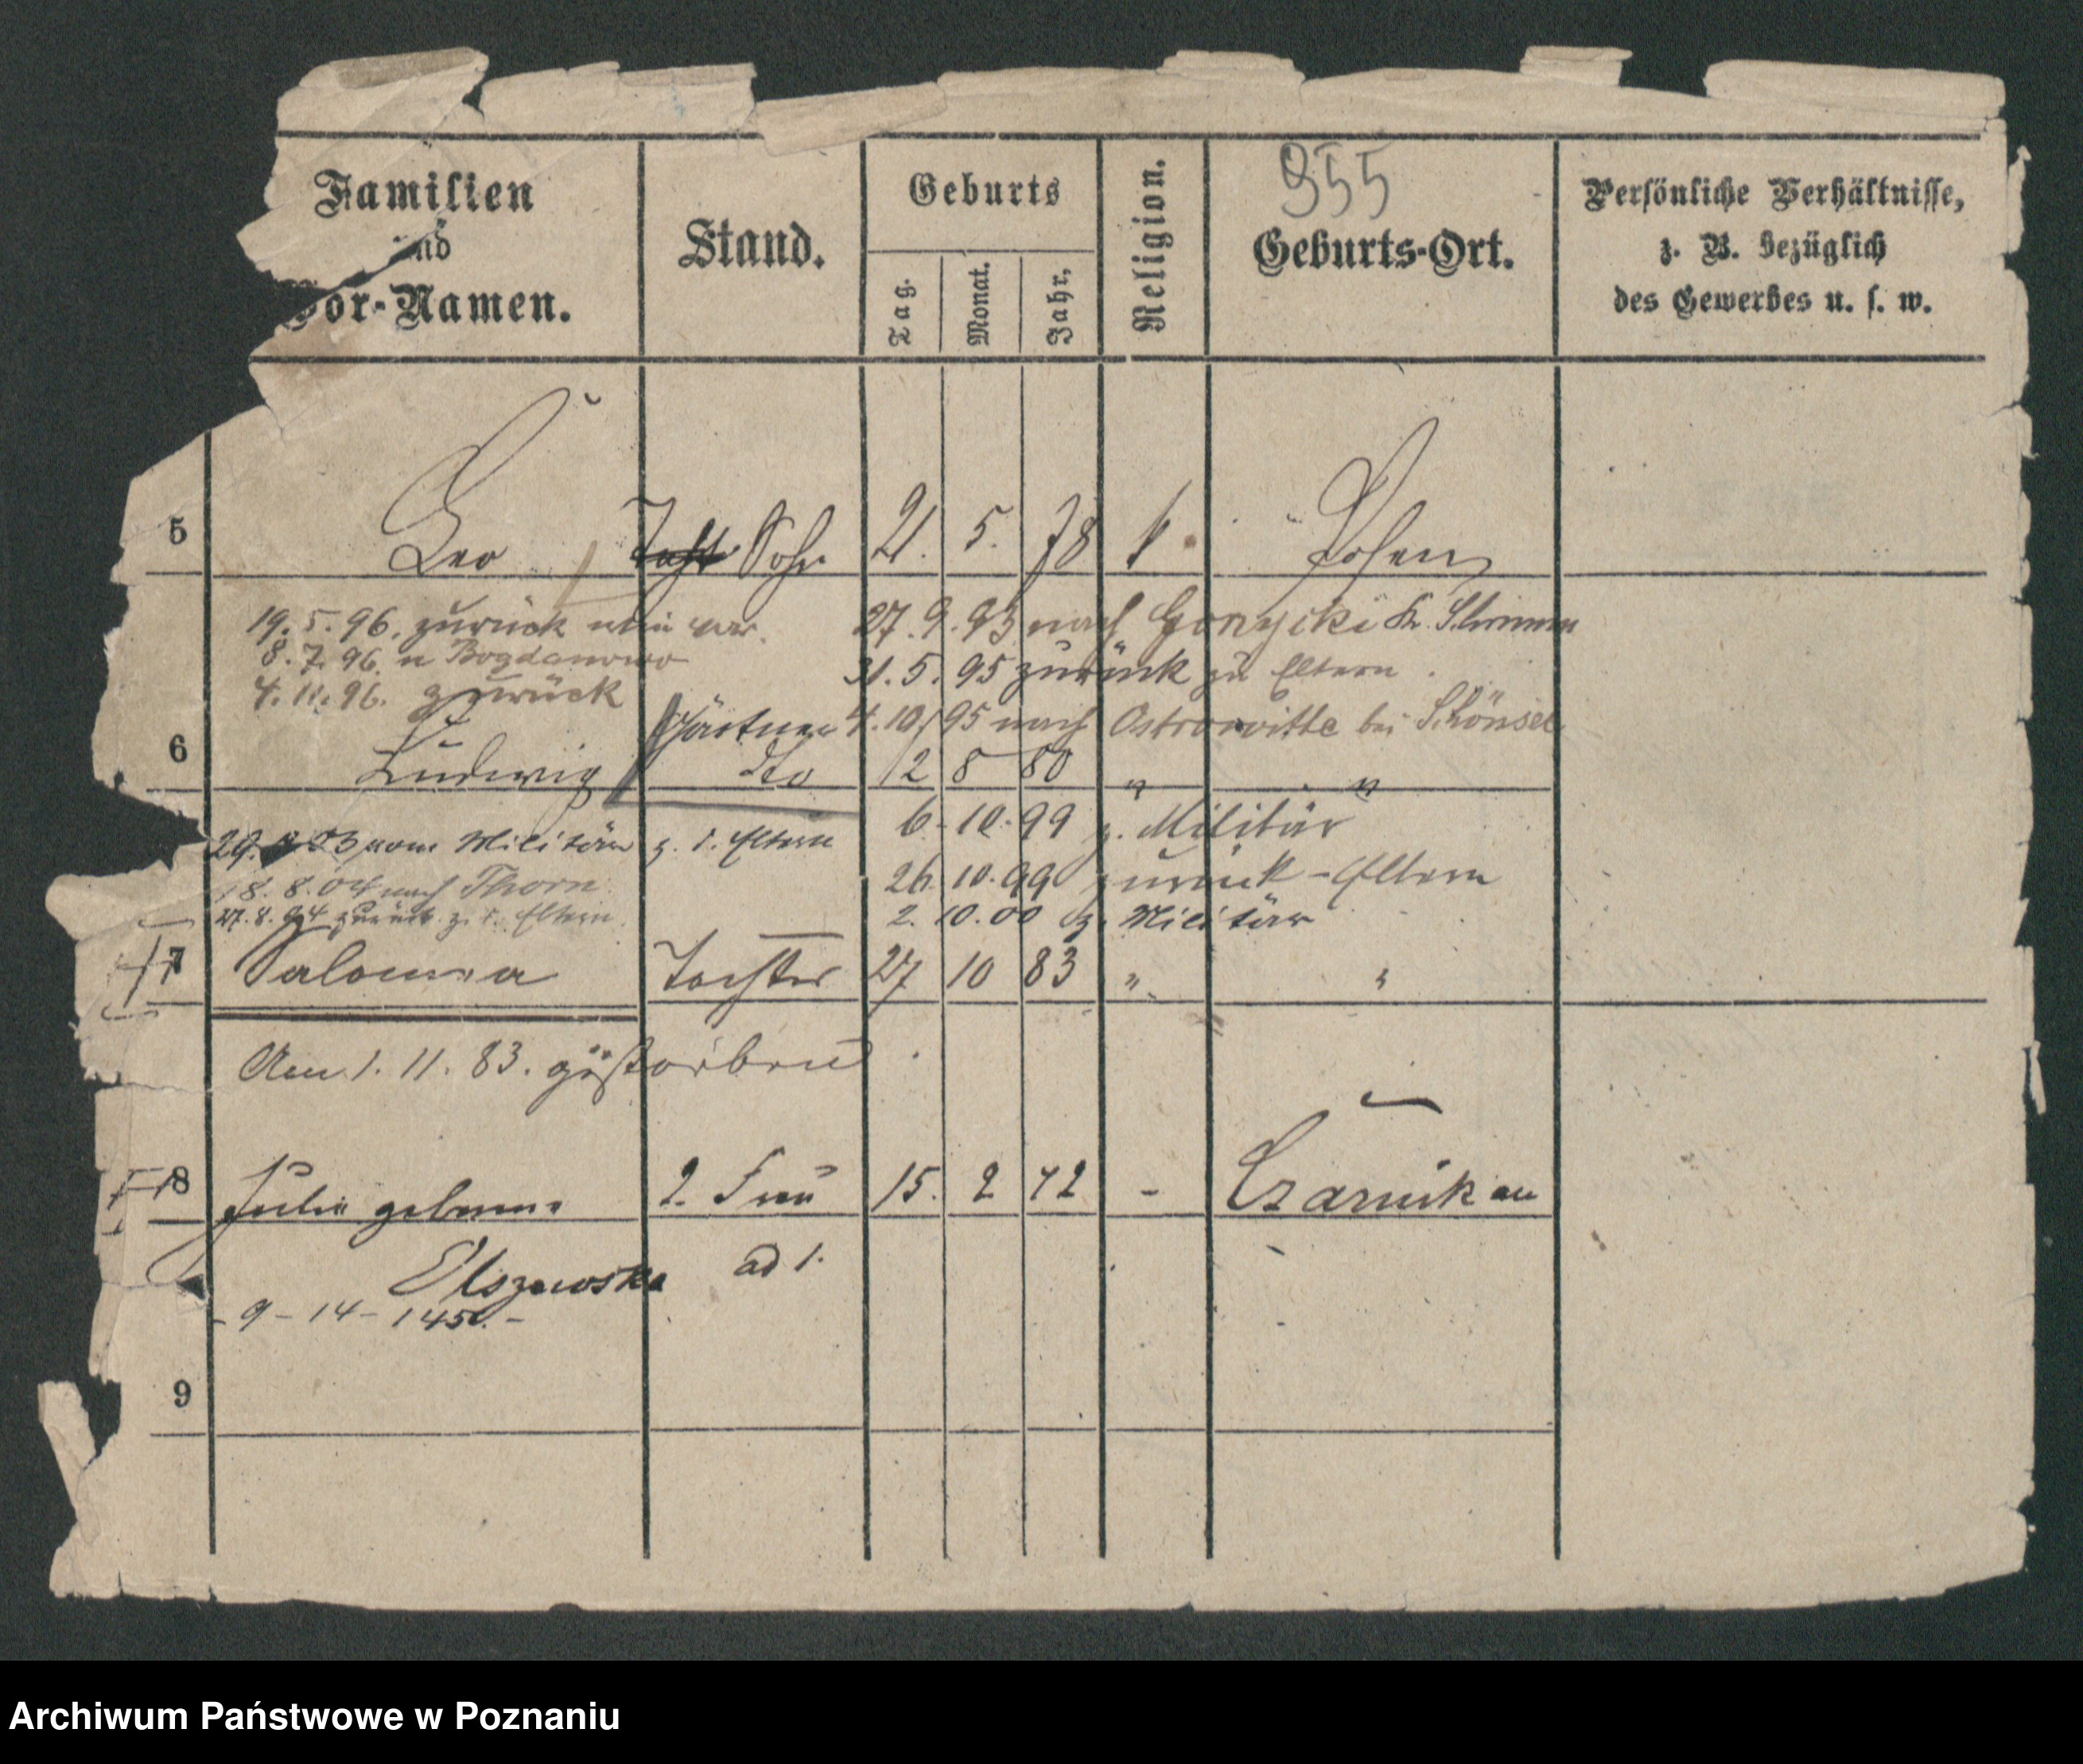 955
Familien
und
Vor-Namen.
Stand.
Geburts
Tag.
Monat.
Jahr.
Religion.
Geburts-Ort.
Persönliche Verhältnisse,
z. B. bezüglich
des Gewerbes u. s. w.
5 Leo Sohn 21. 5. 78 k Posen
19. 5. 96. zurück
27. 9. 93 nach Gorzycki Kr. Schrimm
8. 7. 96 n Bogdanowo
31. 5. 95 zurück zu Eltern.
4. 11. 96. zurück
Gärtner 4. 10. 95 nach Ostrowitte bei Schönsee
6 Ludwig dto 12 8 80 " "
6. 10. 99 z. Militär
29. 03 vom Militär z. d. Eltern
26. 10. 99 zurück - Eltern
18. 8. 04 nach Thorn
27. 8. 04 zurück z. d. Eltern.
2. 10. 00 z. Militär
7 Salomea Tochter 27 10 83 " "
Am 1. 11. 83. gestorben.
8 Julie geborene 2. Frau 15. 2 42 - Czarnikau
Olszewska ad 1.
- 9 - 14 - 145
9
Archiwum Państwowe w Poznaniu